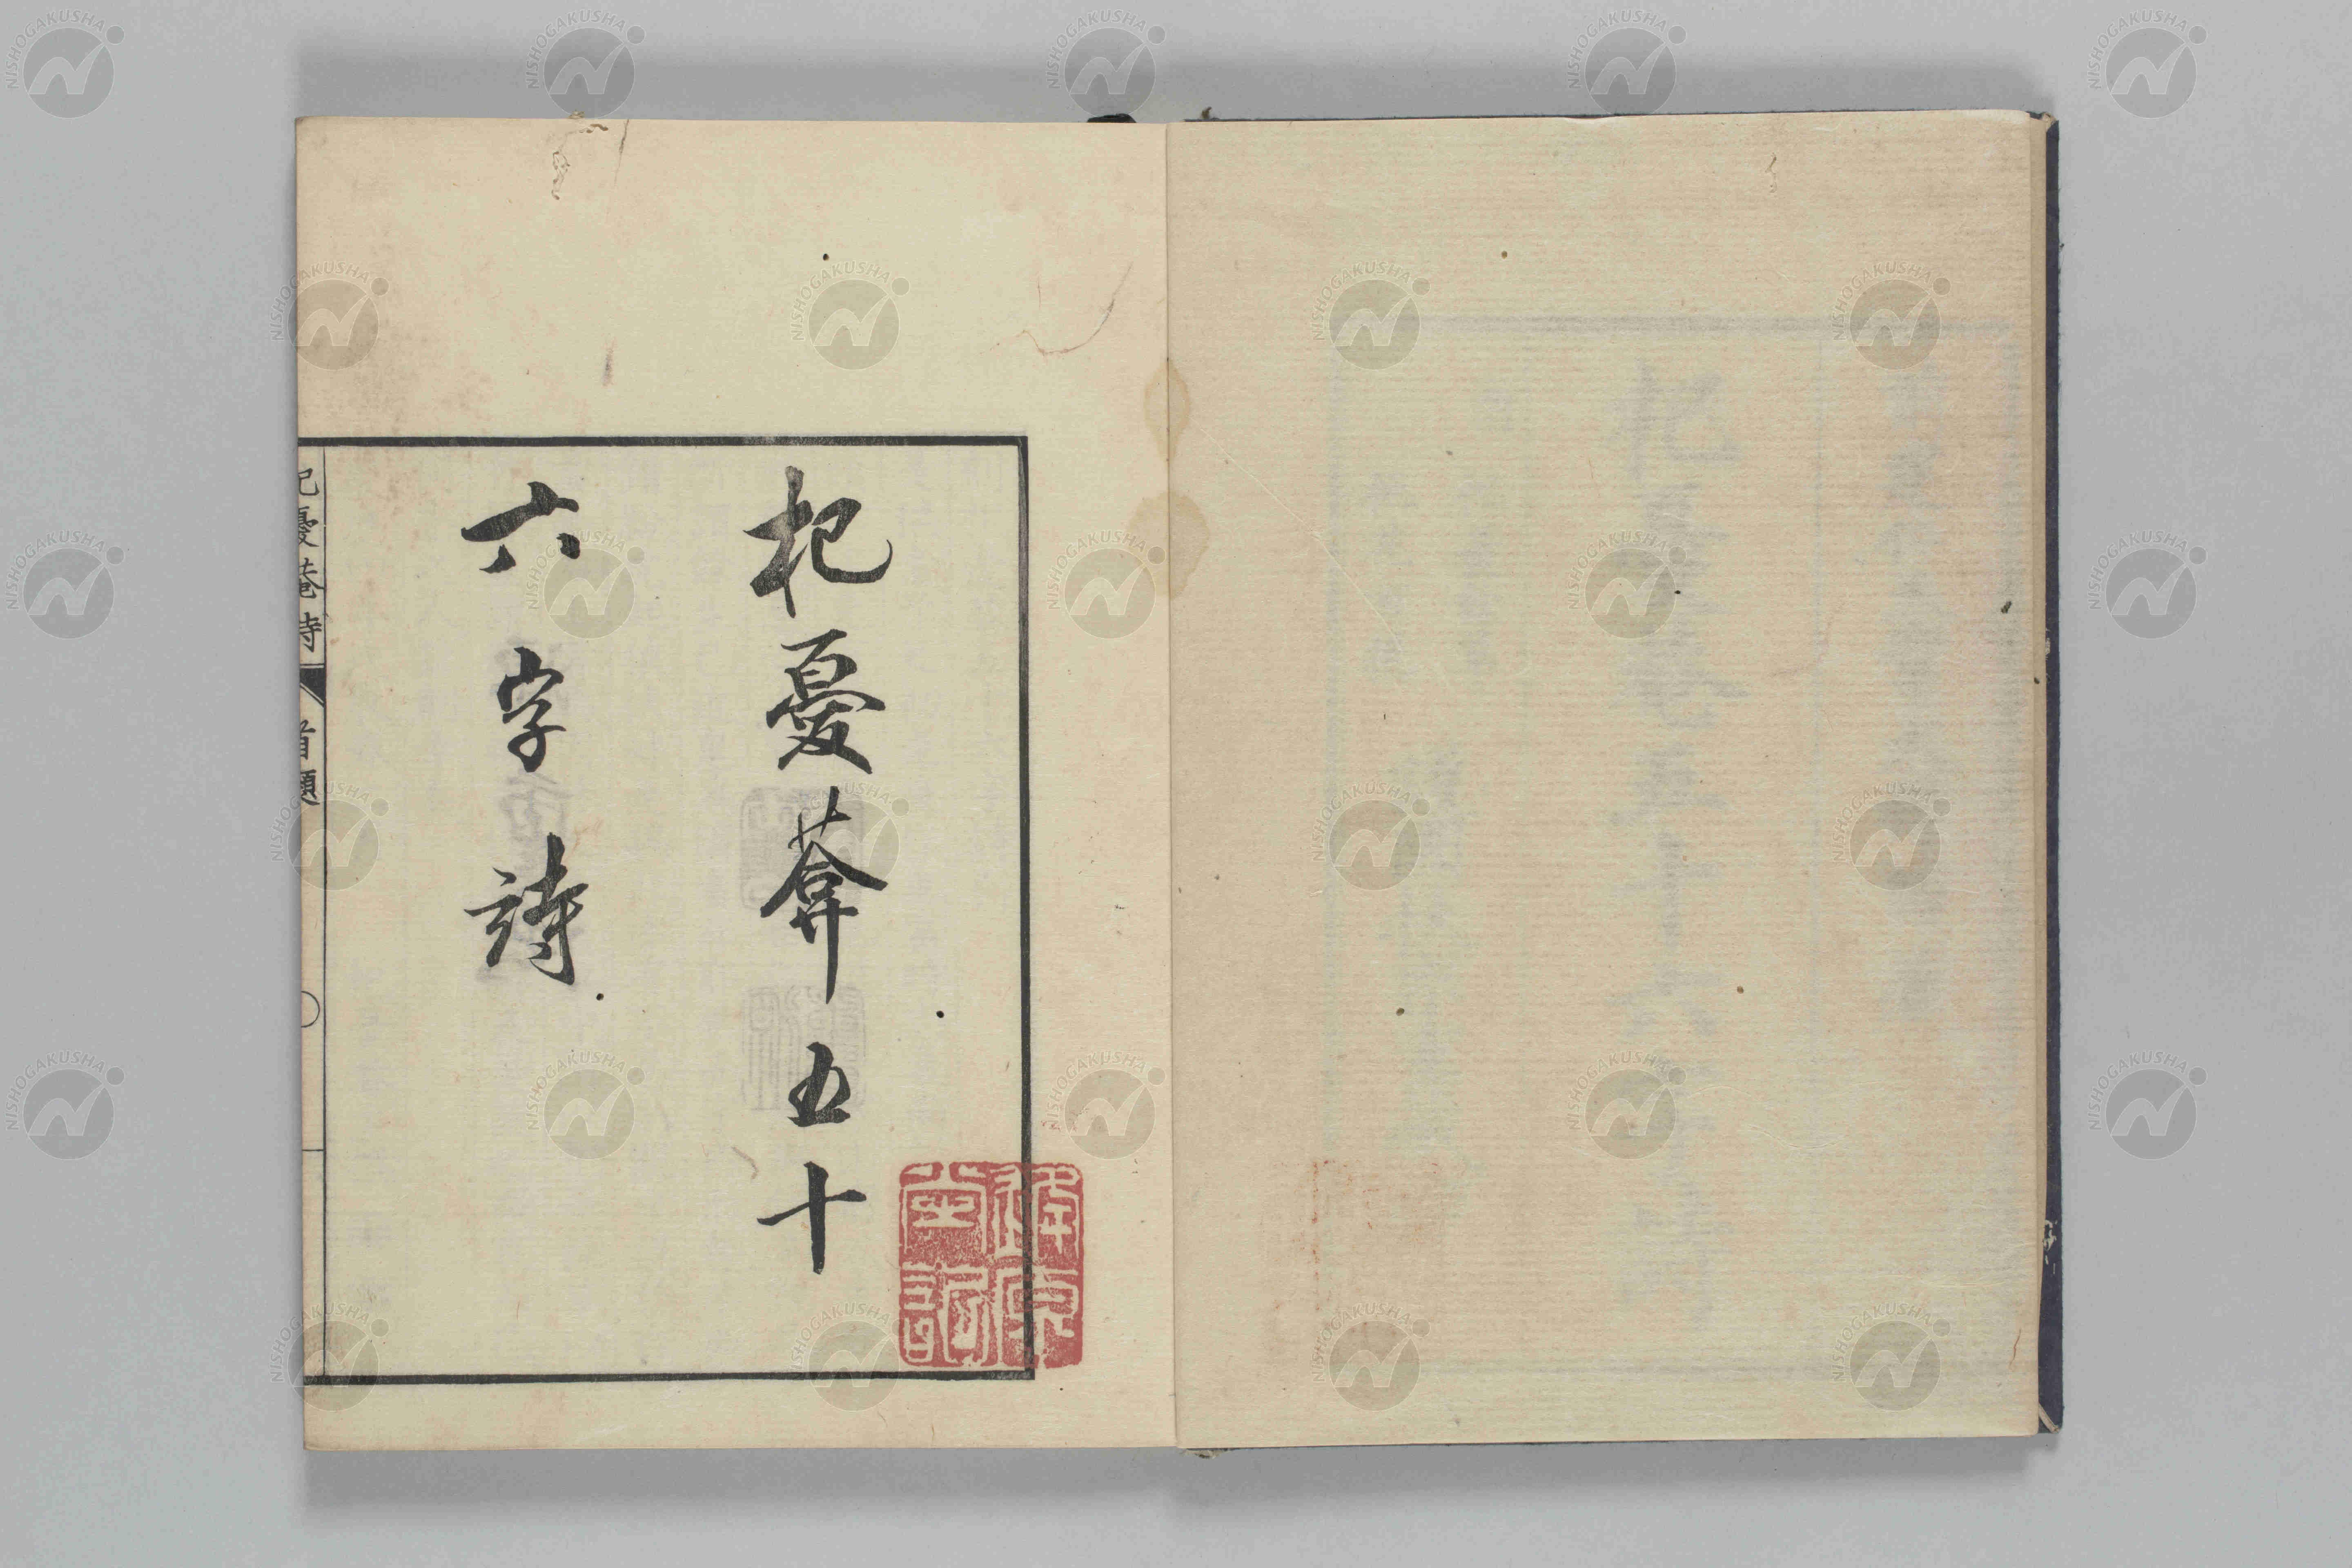 杞憂葊五十
六字詩
杞憂菴詩
首題
NISHOGAKUSHA